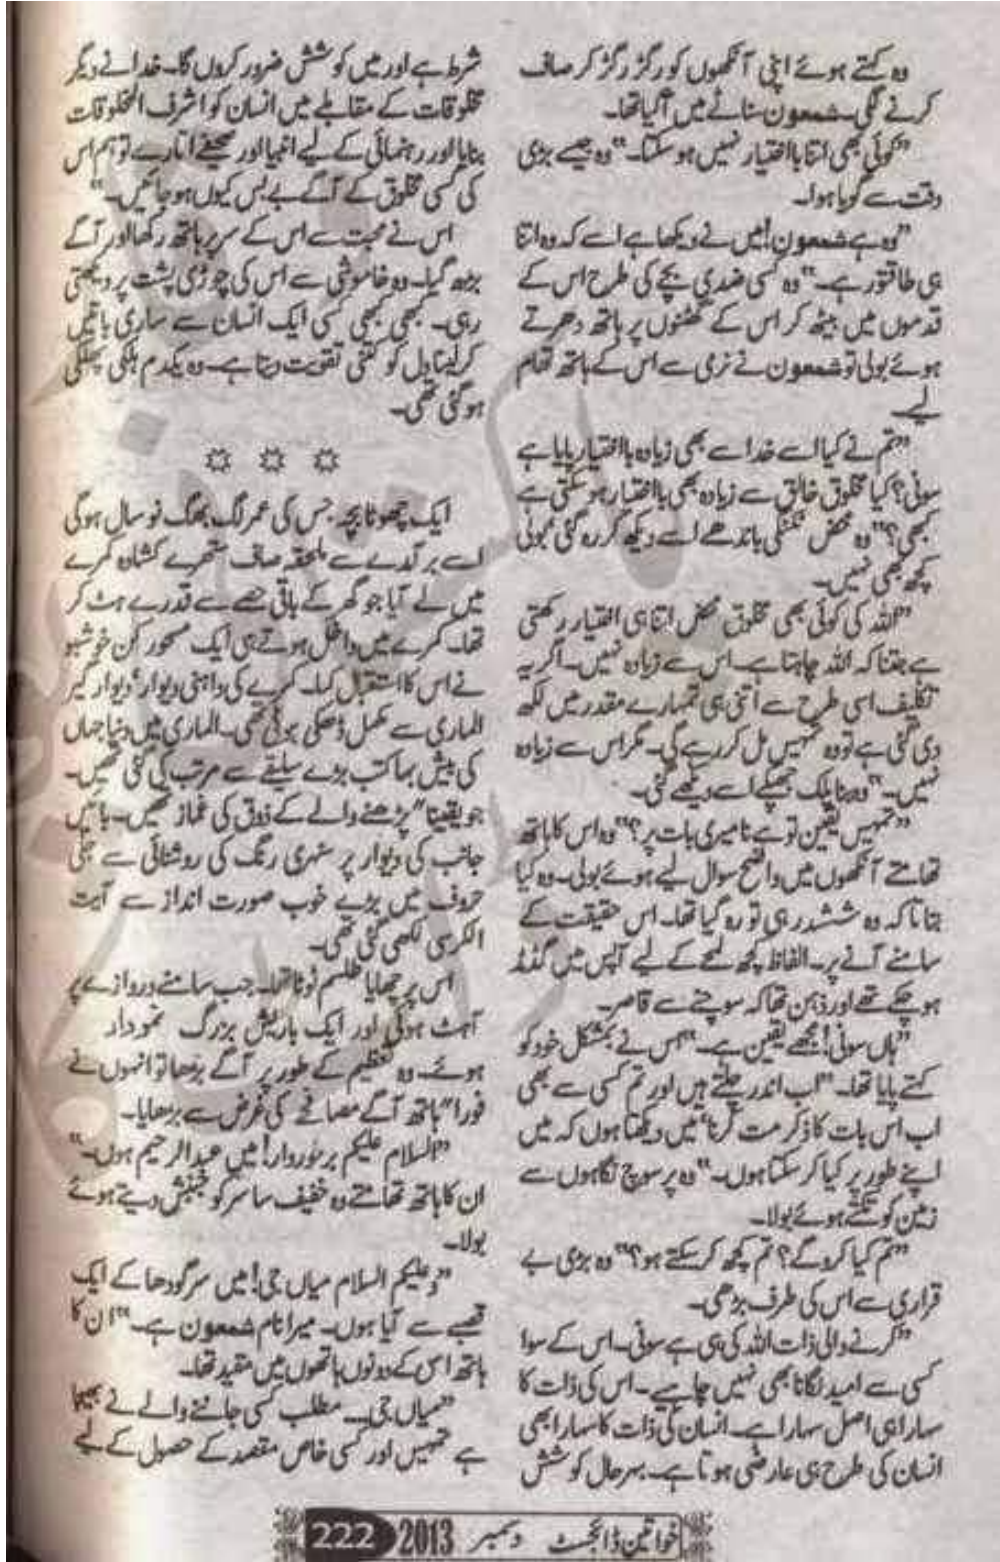 وہ کہتے ہوئے اپنی آنکھوں کو رگڑ رگڑ کر صاف
کرنے لگی۔ شمعون سناٹے میں آگیا تھا۔
”کوئی بھی اتنا بااختیار نہیں ہو سکتا۔“ وہ جیسے بڑی
دقت سے گویا ہوا۔
”وہ ہے شمعون! میں نے دیکھا ہے اسے کہ وہ اتنا
ہی طاقتور ہے۔“ وہ کسی ضدی بچے کی طرح اس کے
قدموں میں بیٹھ کر اس کے گھٹنوں پر ہاتھ دھرتے
ہوئے بولی تو شمعون نے نرمی سے اس کے ہاتھ تھام
لیے۔
”تم نے کیا اسے خدا سے بھی زیادہ بااختیار پایا ہے
سونی؟ کیا مخلوق خالق سے زیادہ بھی بااختیار ہو سکتی ہے
کبھی؟“ وہ محض ٹکٹکی باندھے اسے دیکھ کر رہ گئی بولی
کچھ بھی نہیں۔
”اللہ کی کوئی بھی مخلوق محض اتنا ہی اختیار رکھتی
ہے جتنا کہ اللہ چاہتا ہے۔ اس سے زیادہ نہیں۔ اگر یہ
تکلیف اسی طرح سے اتنی ہی تمہارے مقدر میں لکھ
دی گئی ہے تو وہ تمہیں مل کر رہے گی۔ مگر اس سے زیادہ
نہیں۔“ وہ بنا پلک جھپکے اسے دیکھے گئی۔
”تمہیں یقین تو ہے نا میری بات پر؟“ وہ اس کا ہاتھ
تھامتے آنکھوں میں واضح سوال لیے ہوئے بولی۔ وہ کیا
بتاتا کہ وہ ششدر ہی تو رہ گیا تھا۔ اس حقیقت کے
سامنے آنے پر۔ الفاظ کچھ لمحے کے لیے آپس میں گڈمڈ
ہو چکے تھے اور ذہن تھا کہ سوچنے سے قاصر۔
”ہاں سونی! مجھے یقین ہے۔“ اس نے بمشکل خود کو
کہتے پایا تھا۔ ”اب اندر چلتے ہیں اور تم کسی سے بھی
اب اس بات کا ذکر مت کرنا‘ میں دیکھتا ہوں کہ میں
اپنے طور پر کیا کر سکتا ہوں۔“ وہ پرسوچ نگاہوں سے
زمین کو تکتے ہوئے بولا۔
”تم کیا کرو گے؟ تم کچھ کر سکتے ہو؟“ وہ بڑی بے
قراری سے اس کی طرف بڑھی۔
”کرنے والی ذات اللہ کی ہی ہے سونی۔ اس کے سوا
کسی سے امید لگانا بھی نہیں چاہیے۔ اس کی ذات کا
سہارا ہی اصل سہارا ہے۔ انسان کی ذات کا سہارا بھی
انسان کی طرح ہی عارضی ہوتا ہے۔ بہرحال کوشش
شرط ہے اور میں کوشش ضرور کروں گا۔ خدا نے دیگر
مخلوقات کے مقابلے میں انسان کو اشرف المخلوقات
بنایا اور رہنمائی کے لیے انبیا اور صحیفے اتارے تو ہم اس
کی کسی مخلوق کے آگے بے بس کیوں ہو جائیں۔“
اس نے محبت سے اس کے سر پر ہاتھ رکھا اور آگے
بڑھ گیا۔ وہ خاموشی سے اس کی چوڑی پشت پر دیکھتی
رہی۔ کبھی کبھی کسی ایک انسان سے ساری باتیں
کر لینا دل کو کتنی تقویت دیتا ہے۔ وہ یکدم ہلکی پھلکی
ہو گئی تھی۔
ایک چھوٹا بچہ جس کی عمر لگ بھگ نو سال ہوگی
اسے برآمدے سے ملحقہ صاف ستھرے کشادہ کمرے
میں لے آیا جو گھر کے باقی حصے سے قدرے ہٹ کر
تھا۔ کمرے میں داخل ہوتے ہی ایک مسحور کن خوشبو
نے اس کا استقبال کیا۔ کمرے کی داہنی دیوار‘ دیوار گیر
الماری سے مکمل ڈھکی ہوئی تھی۔ الماری میں دنیا جہاں
کی بیش بہا کتب بڑے سلیقے سے مرتب کی گئی تھیں۔
جو یقیناً” پڑھنے والے کے ذوق کی غماز تھیں۔ بائیں
جانب کی دیوار پر سنہری رنگ کی روشنائی سے جلی
حروف میں بڑے خوب صورت انداز سے آیت
الکرسی لکھی گئی تھی۔
اس پر چھایا طلسم ٹوٹا تھا۔ جب سامنے دروازے پر
آہٹ ہوئی اور ایک باریش بزرگ نمودار
ہوئے۔ وہ تعظیم کے طور پر آگے بڑھا تو انہوں نے
فوراً” ہاتھ آگے مصافحے کی غرض سے بڑھایا۔
”السلام علیکم برخوردار! میں عبدالرحیم ہوں۔“
ان کا ہاتھ تھامتے وہ خفیف سا سر کو جنبش دیتے ہوئے
بولا۔
”وعلیکم السلام میاں جی! میں سرگودھا کے ایک
قصبے سے آیا ہوں۔ میرا نام شمعون ہے۔“ ان کا
ہاتھ اس کے دونوں ہاتھوں میں مقید تھا۔
”میاں جی۔ مطلب کسی جاننے والے نے بھیجا
ہے تمہیں اور کسی خاص مقصد کے حصول کے لیے
خواتین ڈائجسٹ دسمبر 2013 222